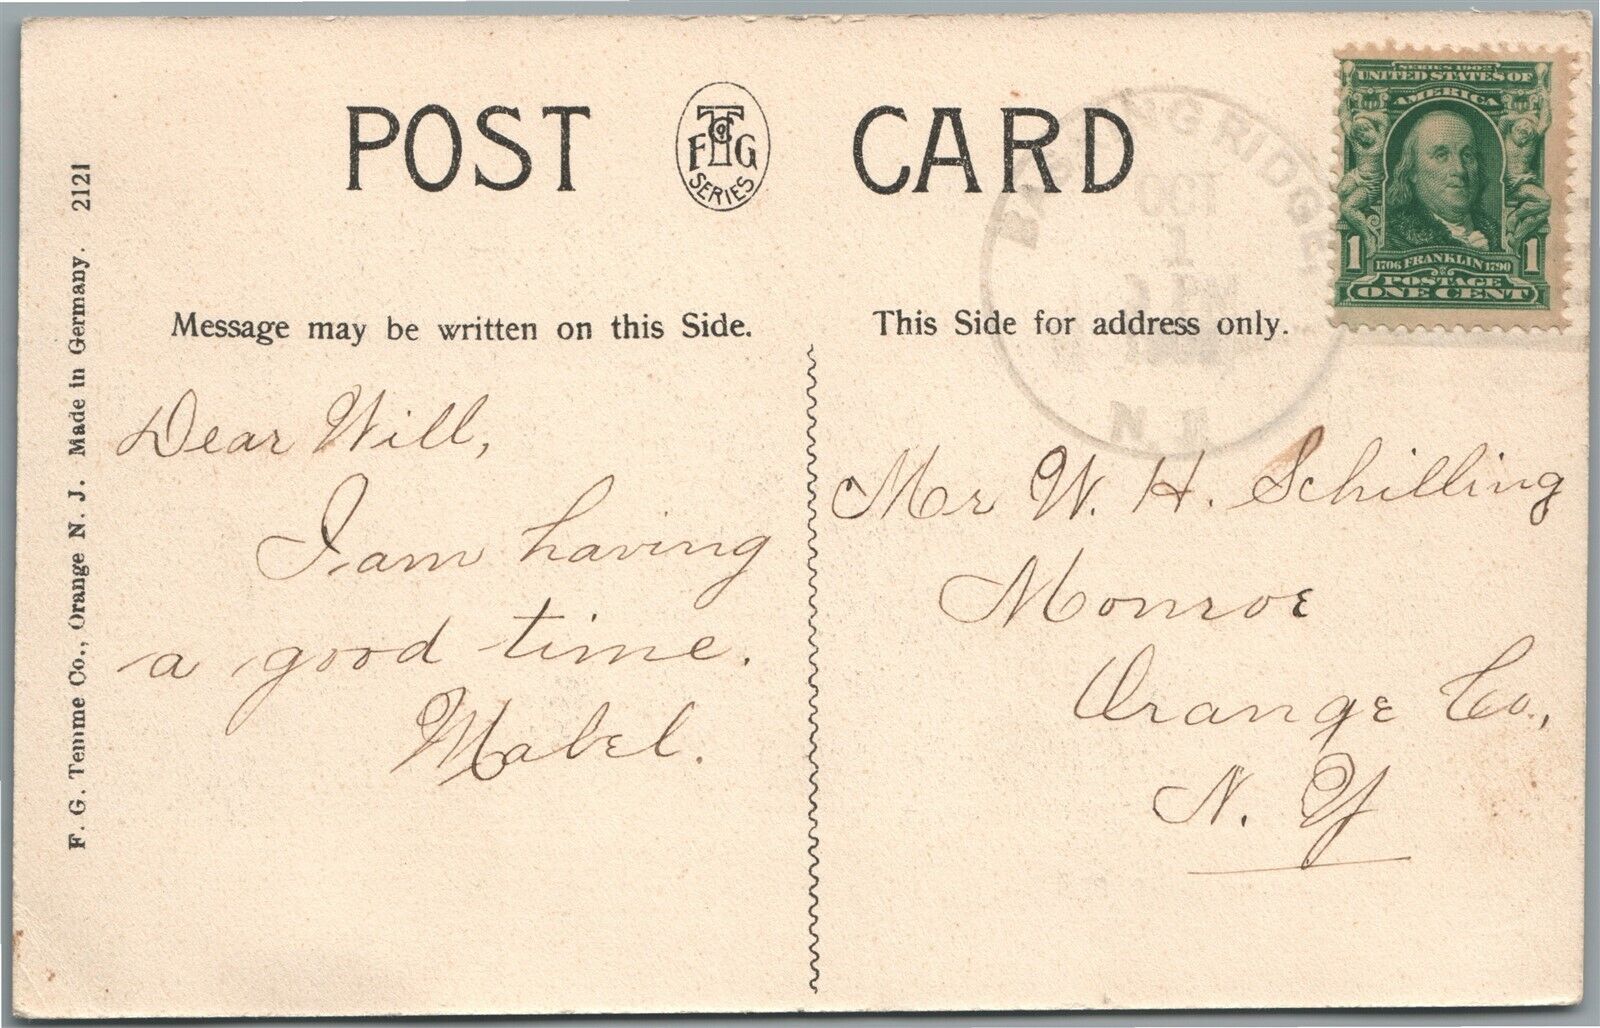 POST CARD
F T Co G
SERIES
BASKING RIDGE
OCT
1
N. J.
SERIES 1902
UNITED STATES OF
AMERICA
1 1
1706 FRANKLIN 1790
POSTAGE
ONE CENT
F. G. Temme Co., Orange N. J. Made in Germany. 2121
Message may be written on this Side.
Dear Will,
I am having
a good time.
Mabel.
This Side for address only.
Mr W. H. Schilling
Monroe
Orange Co.,
N. Y